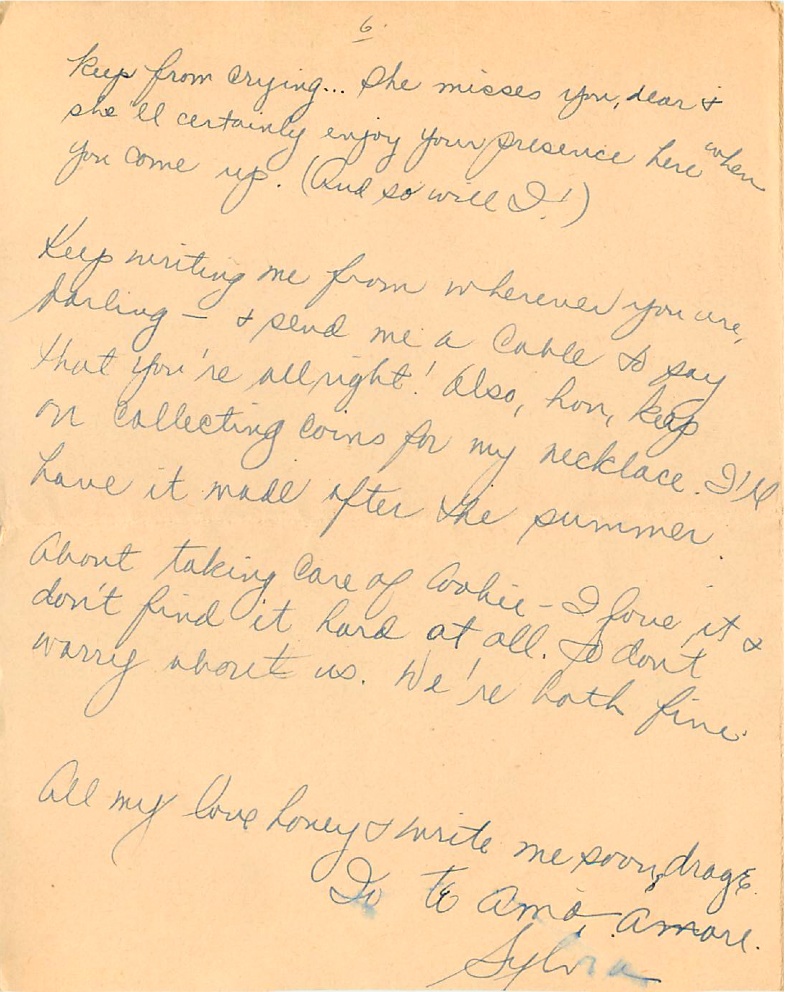 6.
keep from crying... She misses you, dear &
she'll certainly enjoy your presence here when
you come up. (And so will I!)
Keep writing me from wherever you are,
darling — & send me a cable to say
that you're allright! Also, hon, keep
on collecting coins for my necklace. I'll
have it made after the summer.
About taking care of Cookie - I love it &
don't find it hard at all. So don't
worry about us. We're both fine.
All my love honey & write me soon, drage.
Io te amo, amore.
Sylvia